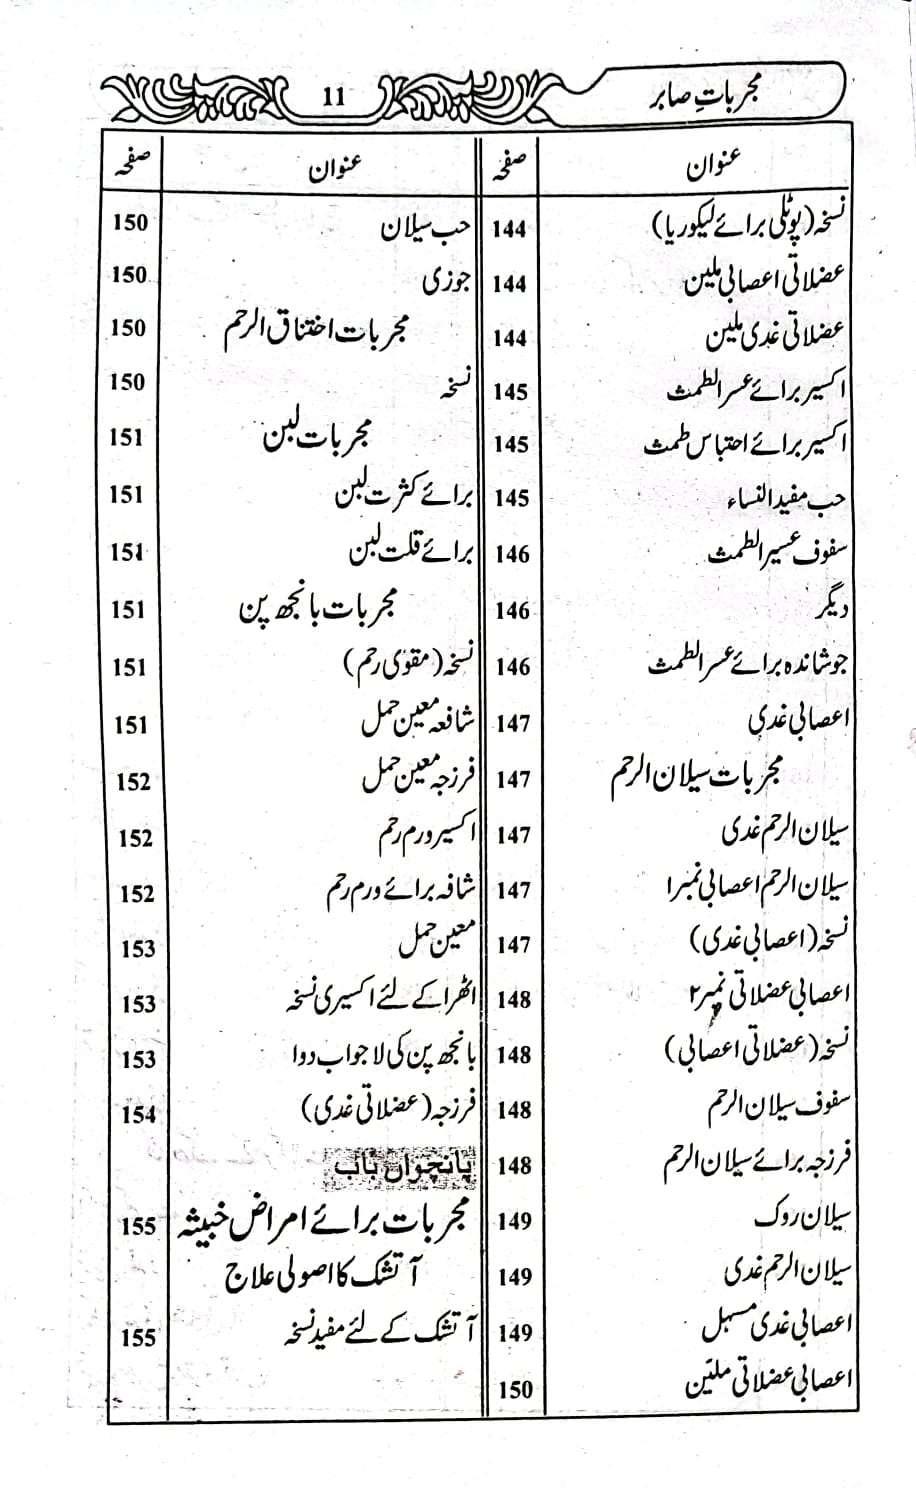 مجرباتِ صابر
11
عنوان صفحہ
نسخہ (پوٹلی برائے لیکوریا) 144
عضلاتی اعصابی ملین 144
عضلاتی غدی ملین 144
اکسیر برائے عسر الطمث 145
اکسیر برائے احتباس طمث 145
حب مفید النساء 145
سفوف عسیر الطمث 146
دیگر 146
جوشاندہ برائے عسر الطمث 146
اعصابی غدی 147
مجربات سیلان الرحم 147
سیلان الرحم غدی 147
سیلان الرحم اعصابی نمبر ۱ 147
نسخہ (اعصابی غدی) 147
اعصابی عضلاتی نمبر ۲ 148
نسخہ (عضلاتی اعصابی) 148
سفوف سیلان الرحم 148
فرزجہ برائے سیلان الرحم 148
سیلان روک 149
سیلان الرحم غدی 149
اعصابی غدی مسہل 149
اعصابی عضلاتی ملیّن 150
عنوان صفحہ
حب سیلان 150
جوزی 150
مجربات اختناق الرحم 150
نسخہ 150
مجربات لبن 151
برائے کثرت لبن 151
برائے قلت لبن 151
مجربات بانجھ پن 151
نسخہ (مقوی رحم) 151
شافعہ معین حمل 151
فرزجہ معین حمل 152
اکسیر ورم رحم 152
شافہ برائے ورم رحم 152
معین حمل 153
اٹھرا کے لئے اکسیری نسخہ 153
بانجھ پن کی لاجواب دوا 153
فرزجہ (عضلاتی غدی) 154
پانچواں باب
مجربات برائے امراض خبیثہ 155
آتشک کا اصولی علاج
آتشک کے لئے مفید نسخہ 155